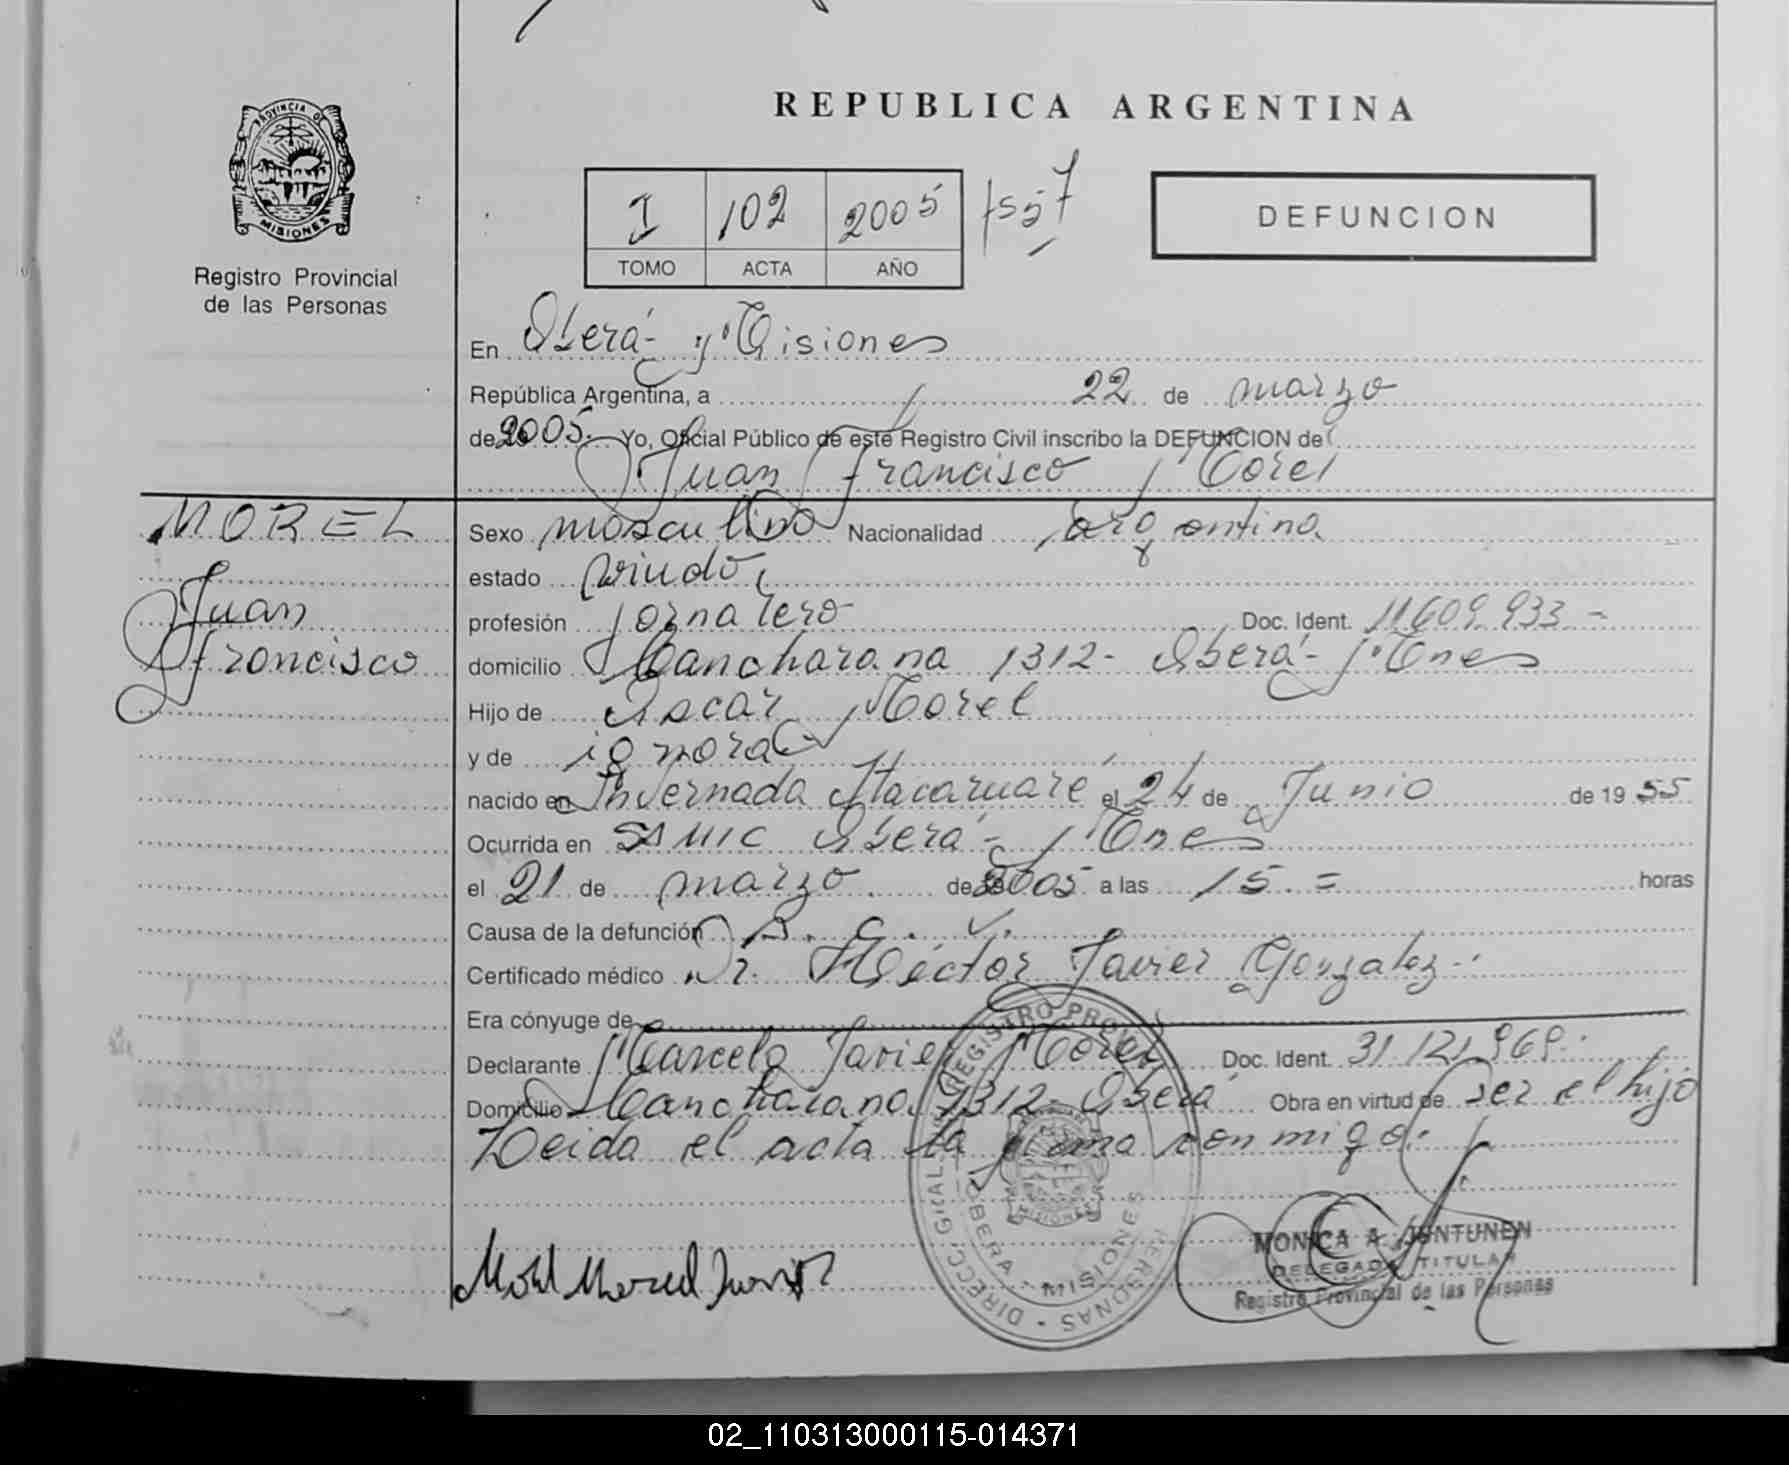 REPUBLICA ARGENTINA
PROVINCIA DE MISIONES
Registro Provincial
de las Personas
I 102 2005
TOMO ACTA AÑO
DEFUNCION
En Oberá - Misiones
República Argentina, a 22 de marzo
de 2005. Yo, Oficial Público de este Registro Civil inscribo la DEFUNCION de
Juan Francisco Morel
MOREL
Juan
Francisco
Sexo masculino Nacionalidad argentina
estado viudo
profesión jornalero Doc. Ident. 11.609.933 -
domicilio 1312 - Oberá - Mnes
Hijo de Oscar Morel
y de ignora
nacido en Invernada Itacaruaré el 24 de Junio de 1955
Ocurrida en SAMIC Oberá - Mnes
el 21 de marzo de 2005 a las 15. = horas
Causa de la defunción
Certificado médico Dr. Héctor Javier Gonzalez -
Era cónyuge de
Declarante Marcelo Javier Morel Doc. Ident. 31.121.969.
Domicilio 1312 - Oberá Obra en virtud de ser el hijo
Leida el acta la firma conmigo.
DIRECC. GRAL. REGISTRO PROVINCIAL PERSONAS
OBERA - MISIONES
Morel Marcelo Javier
MONICA A. JUNTUNEN
DELEGADA TITULAR
Registro Provincial de las Personas
02_110313000115-014371